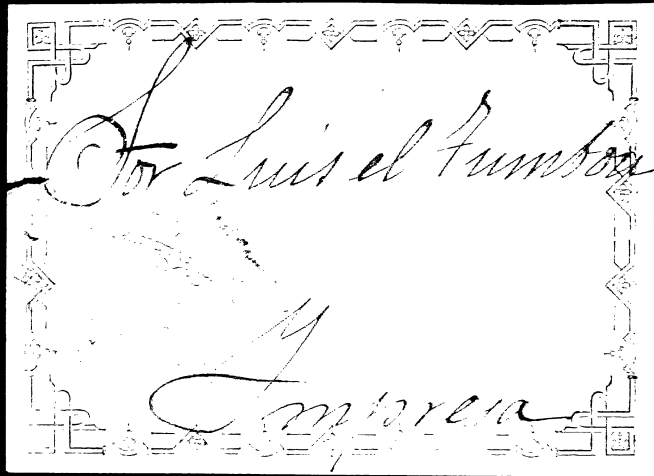 Sor Luis el Tumbon
Y
Empresa